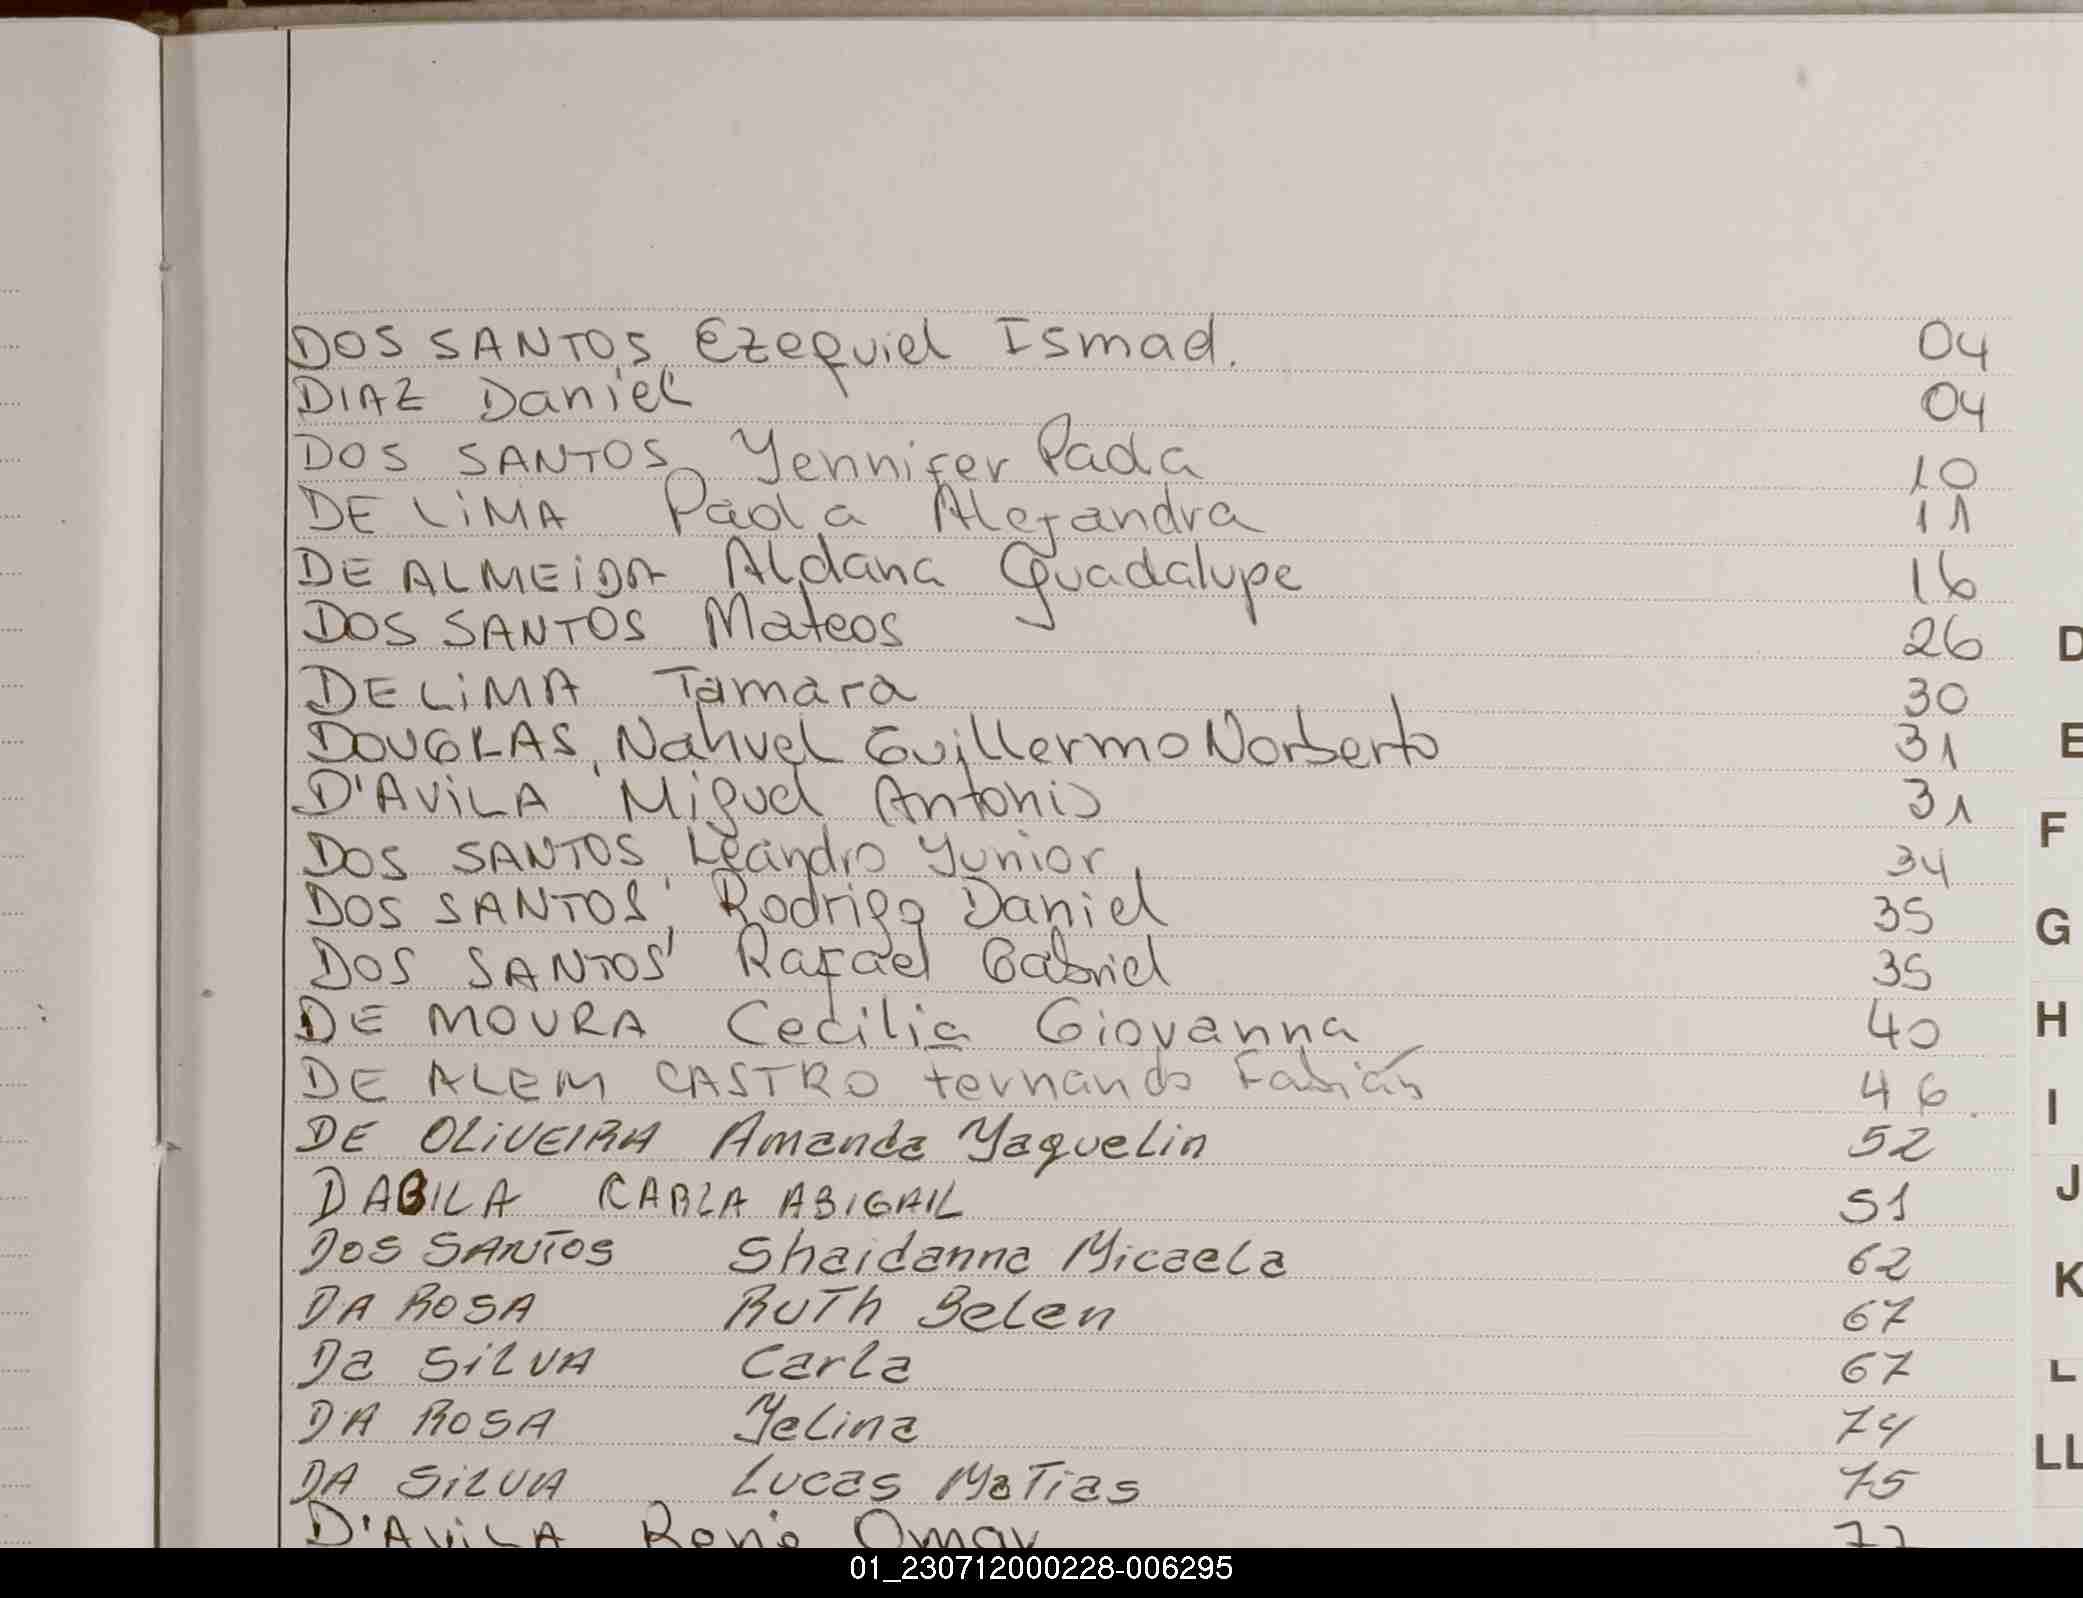 DOS SANTOS, Ezequiel Ismael. 04
DIAZ Daniel 04
DOS SANTOS, Yennifer Paola 10
DE LiMA Paola Alejandra 11
DE ALMEiDA Aldana Guadalupe 16
DOS SANTOS Mateos 26
DE LiMA Tamara 30
DOUGLAS, Nahuel Guillermo Norberto 31
D'AViLA Miguel Antonio 31
DOS SANTOS Leandro Yunior 34
DOS SANTOS, Rodrigo Daniel 35
DOS SANTOS Rafael Gabriel 35
DE MOURA Cecilia Giovanna 40
DE ALEM CASTRO Fernando Fabián 46.
DE OLiVEIRA Amanda Yaquelin 52
DABILA CARLA ABIGAIL 51
DOS SANTOS Shaidanna Micaela 62
DA ROSA RUTh Belen 67
Da SiLVA Carla 67
DA ROSA Yelina 74
DA SiLVA Lucas MaTias 75
D'AViLA René Omar 77
D
E
F
G
H
I
J
K
L
LL
01_230712000228-006295